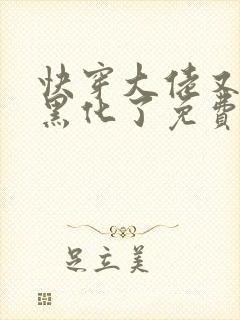 快穿大佬又
黑化了免費
足立美